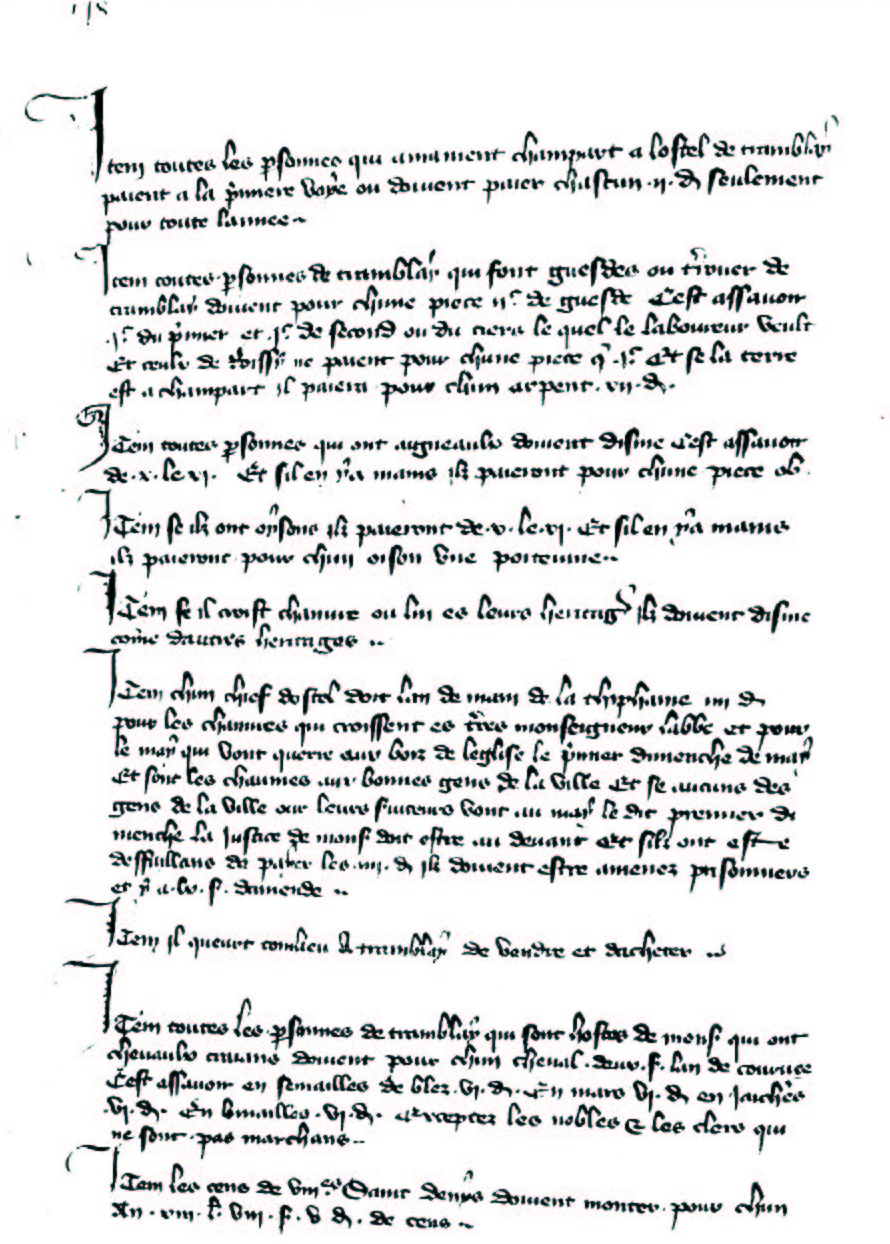 Item toutes les psonnes qui amainent champart a lostel de tramblay
paient a la pmiere voye ou doivent paier chascun .ii. d seulement
pour toute lannee
Item toutes psonnes de tramblay qui font guesdes ou de
tramblay doivent pour chune piece de guesde Cest assavoir
du pmier et de second ou du tiers le quel le laboureur veult
Et ceulx de Roissy ne paient pour chune piece Et se la terre
est a champart il paiera pour chun arpent .vii. d.
Item toutes psonnes qui ont aigneaulx doivent disme Cest assavoir
de .x. le .xi. Et sil en y a mains ilz paieront pour chune piece ob
Item se ilz ont oysons ilz paieront de .x. le .xi. Et sil en y a mains
ilz paieront pour chun oison une poitevine
Item se il croist chanvre ou lin es leurs heritages ilz doivent disme
come dautres heritages
Item chun chief dostel doit lan de main de la thiphaine iiii d
pour les chaumes qui croissent es tres monseigneur labbe et pour
le may qui vont querre aux boiz de leglise le pmier dimenche de may
Et sont les chaumes aux bonnes gens de la ville Et se aucuns des
gens de la ville ou leurs vont au may le dit premier di
menche la justice de mons doit estre au devant Et silz ont este
deffaillans de paier les .iiii. d ilz doivent estre amenez prisonniers
et y a .lx. s. damende
Item il queurt tonlieu A tramblay de vendre et dacheter
Item toutes les psonnes de tramblay qui sont hostes de mons qui ont
chevaulx traians doivent pour chun cheval .deux .s. lan de
Cest assavoir en semailles de blez .vi. d. En mars vi. d en jacheres
.vi. d. En binailles .vi. d. Exceptez les nobles & les clers qui
ne sont pas marchans
Item les cens de Saint denys doivent monter pour chun
An .xviii. l. viii. s. v d. de cens